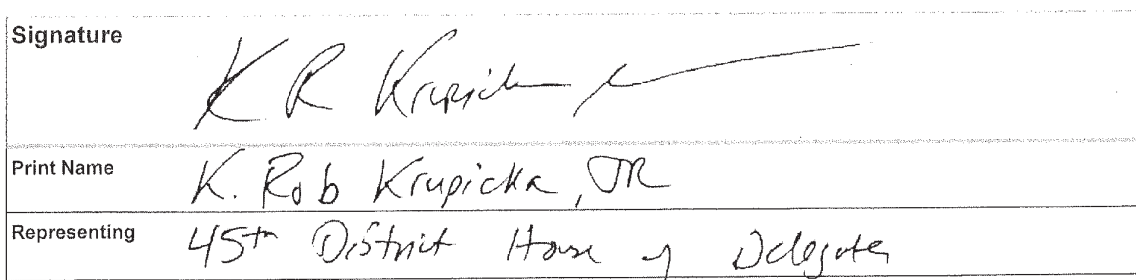 Signature K R Krupicka Jr
Print Name K. Rob Krupicka, JR
Representing 45th District House of Delegates